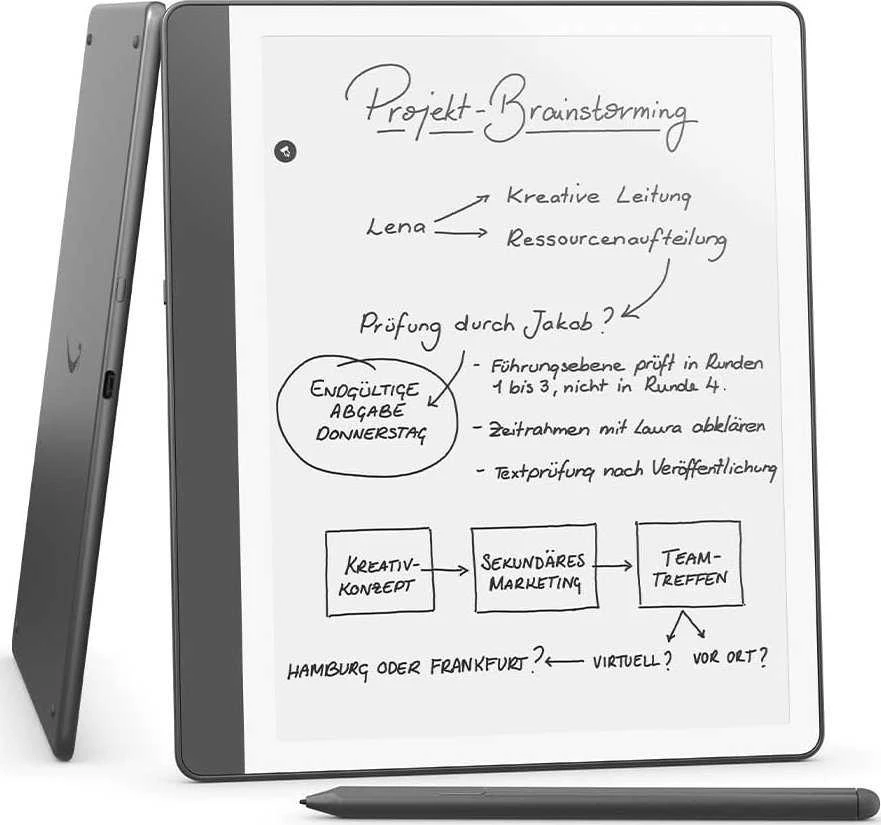 Projekt-Brainstorming
Kreative Leitung
Lena
Ressourcenaufteilung
Prüfung durch Jakob?
- Führungsebene prüft in Runden
1 bis 3, nicht in Runde 4.
ENDGÜLTIGE
ABGABE
DONNERSTAG
- Zeitrahmen mit Laura abklären
- Textprüfung nach Veröffentlichung
KREATIV-
KONZEPT
SEKUNDÄRES
MARKETING
TEAM-
TREFFEN
HAMBURG ODER FRANKFURT? VIRTUELL? VOR ORT?